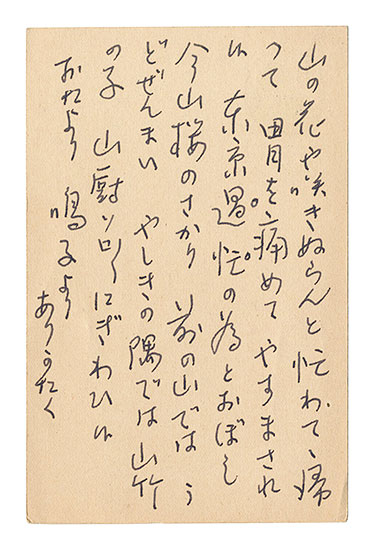 山の花や咲きぬらんと忙わて帰
って 胃を痛めて やすまされ
候 東京過忙の為とおぼし
今山桜のさかり 前の山では う
どぜんまい やしきの隅では 山竹
の子 山厨ソロ〱にぎわひ候
おたより 鳴子より
ありがたく